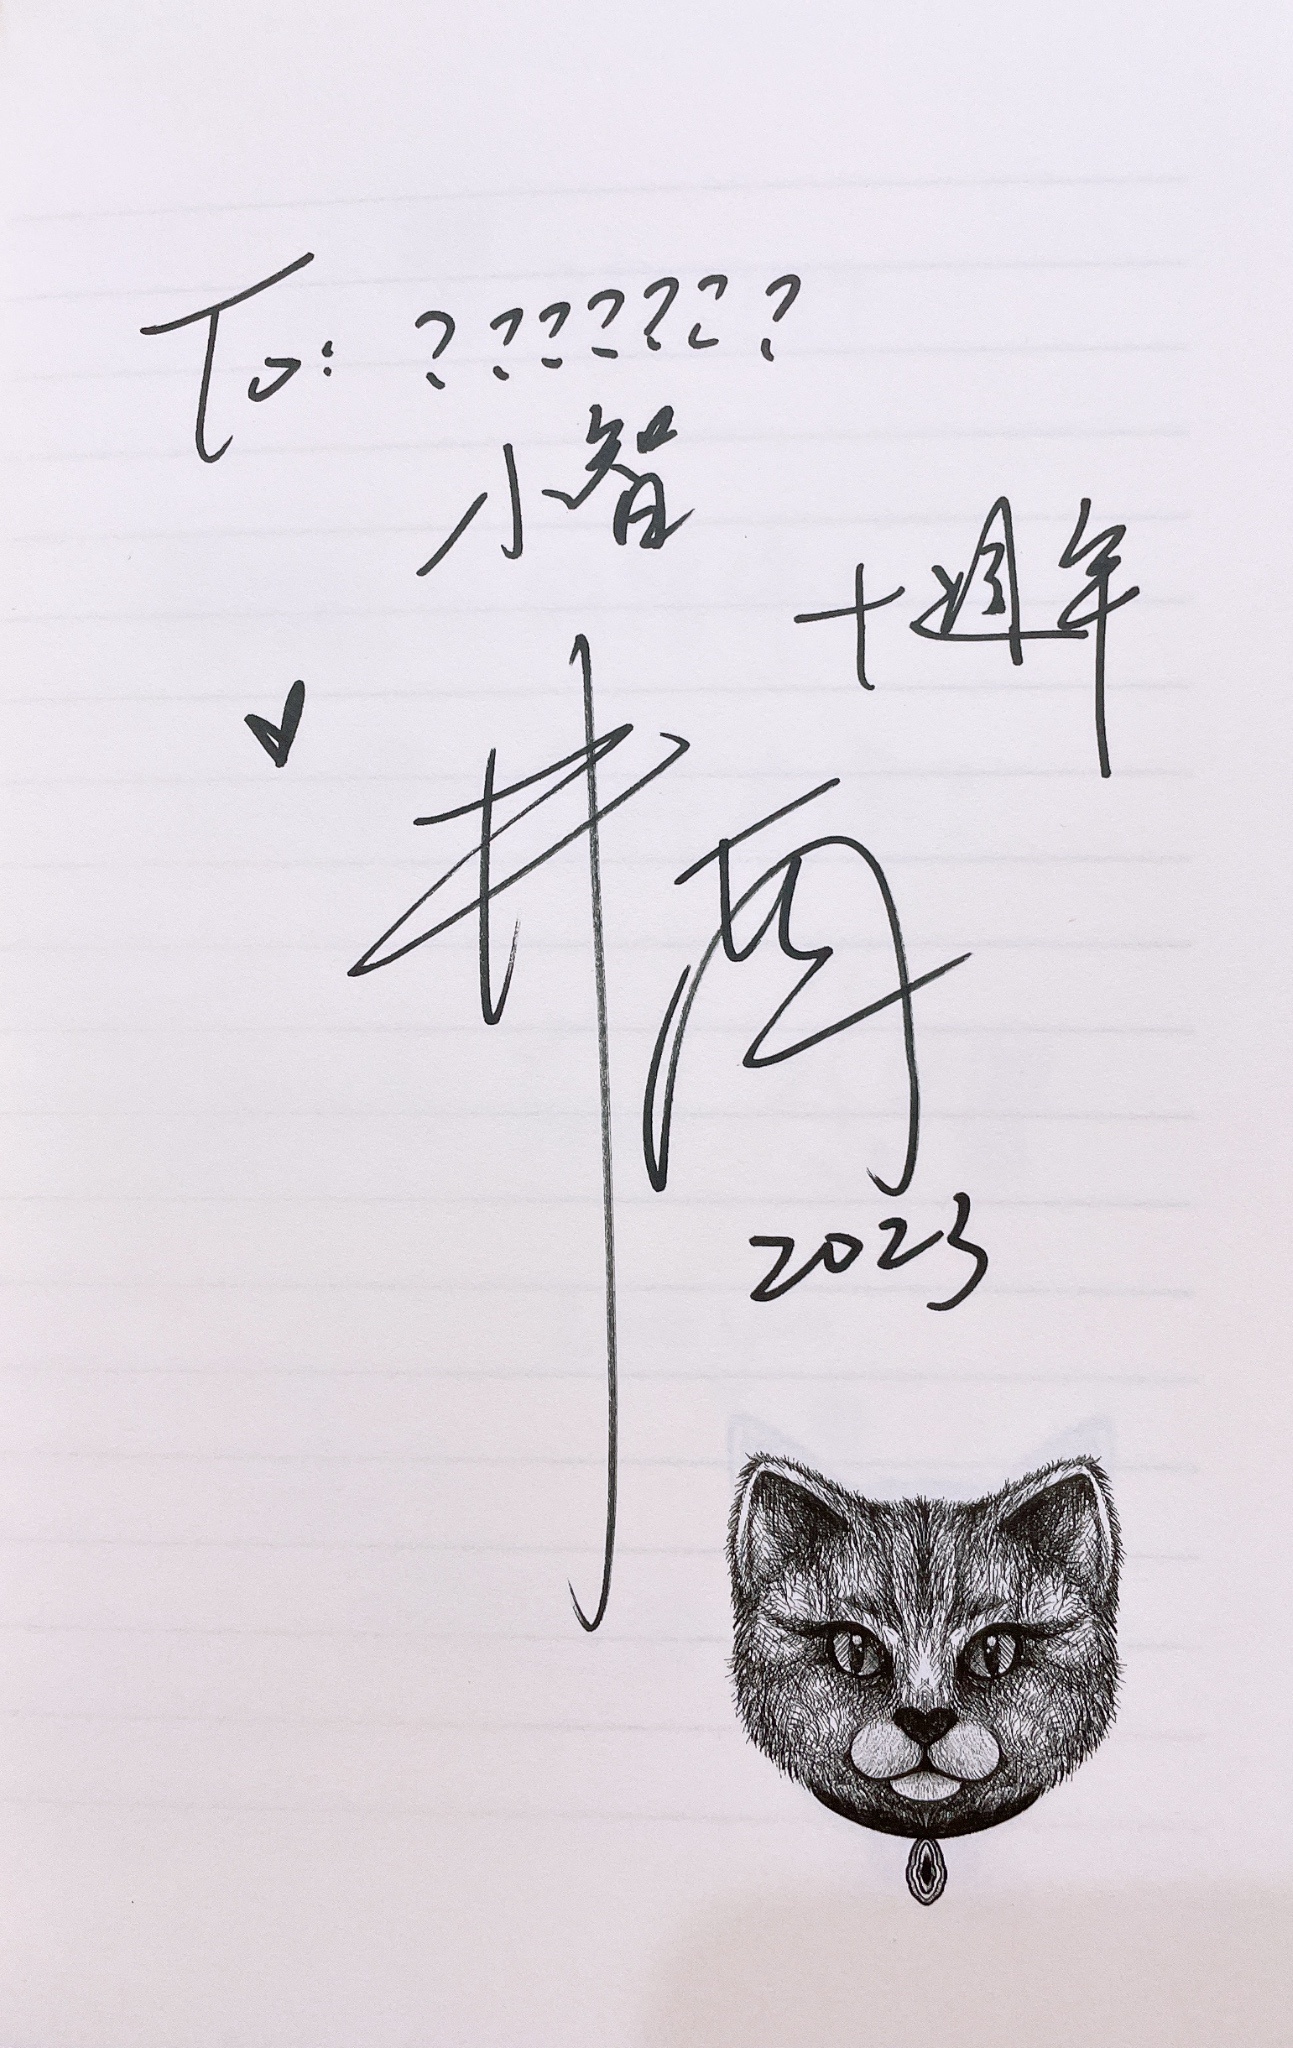 To: ???????
小智
十週年
井雨
2023